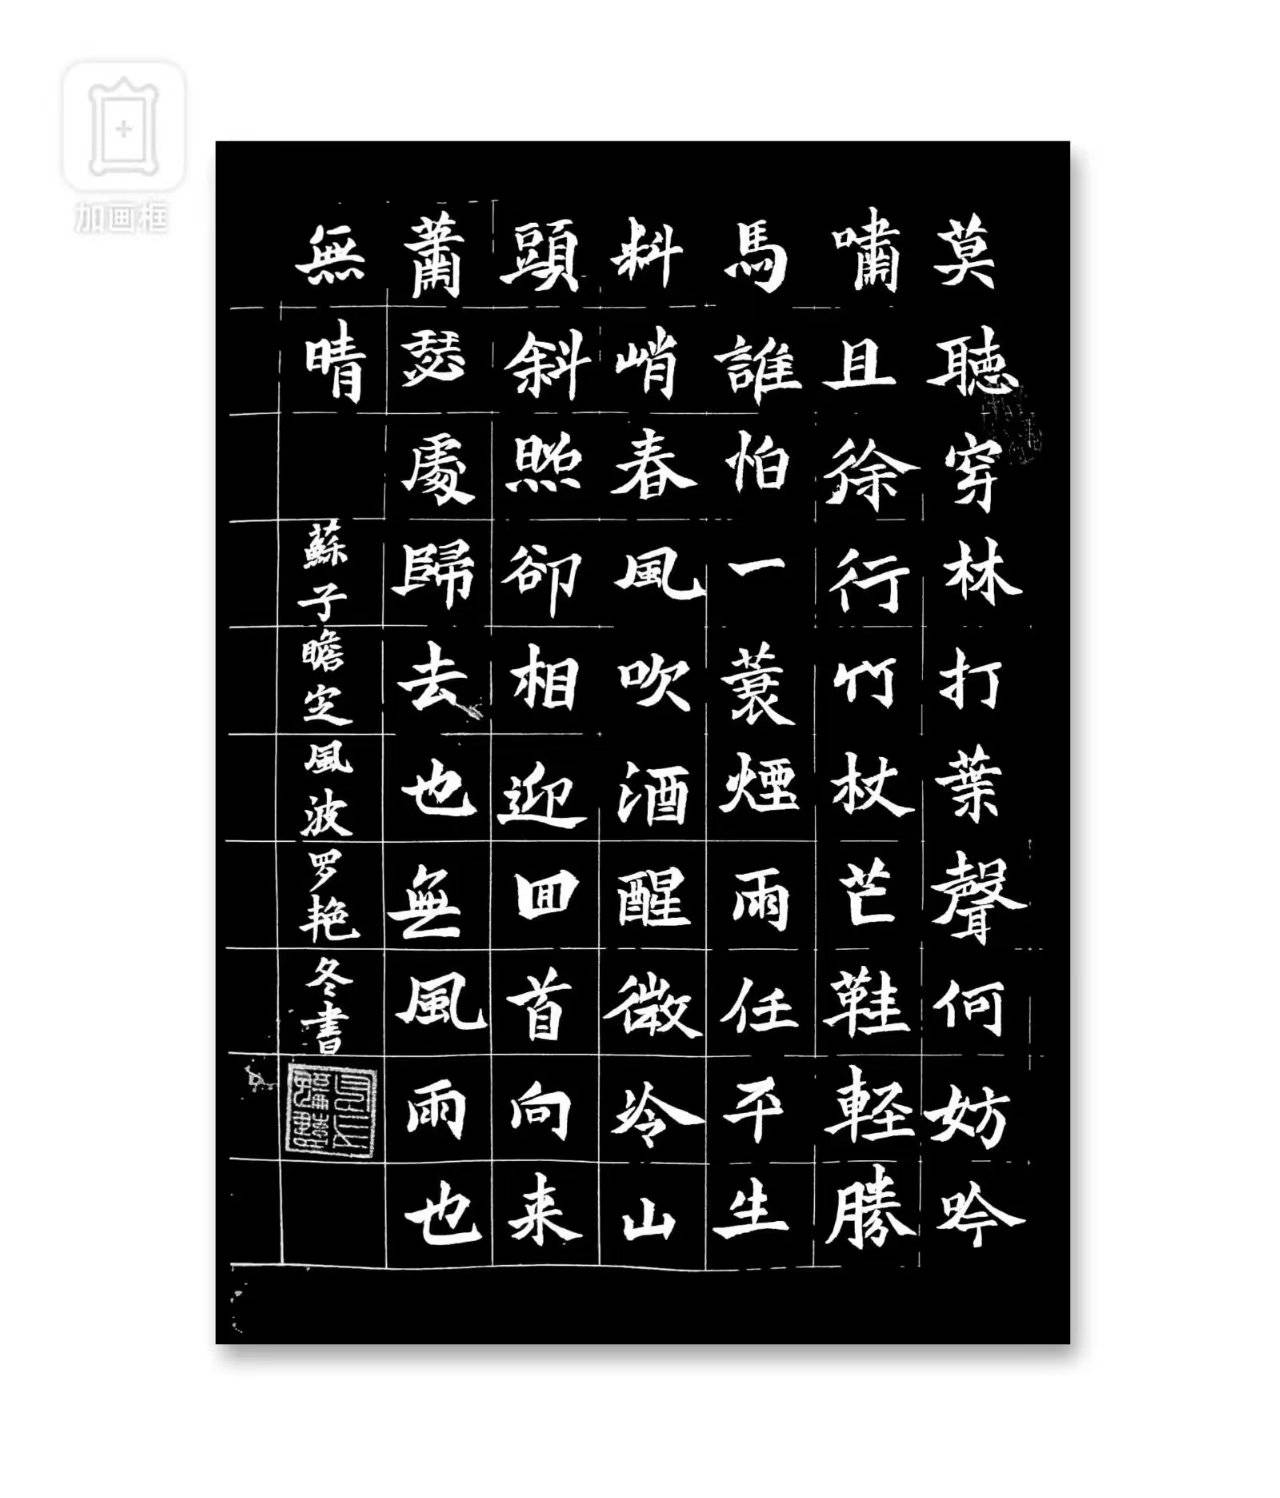 加画框
莫聽穿林打葉聲何妨吟
嘯且徐行竹杖芒鞋軽勝
馬誰怕一蓑煙雨任平生
料峭春風吹酒醒微冷山
頭斜照卻相迎回首向来
蕭瑟處歸去也無風雨也
無晴
蘇子瞻定風波罗艳冬書